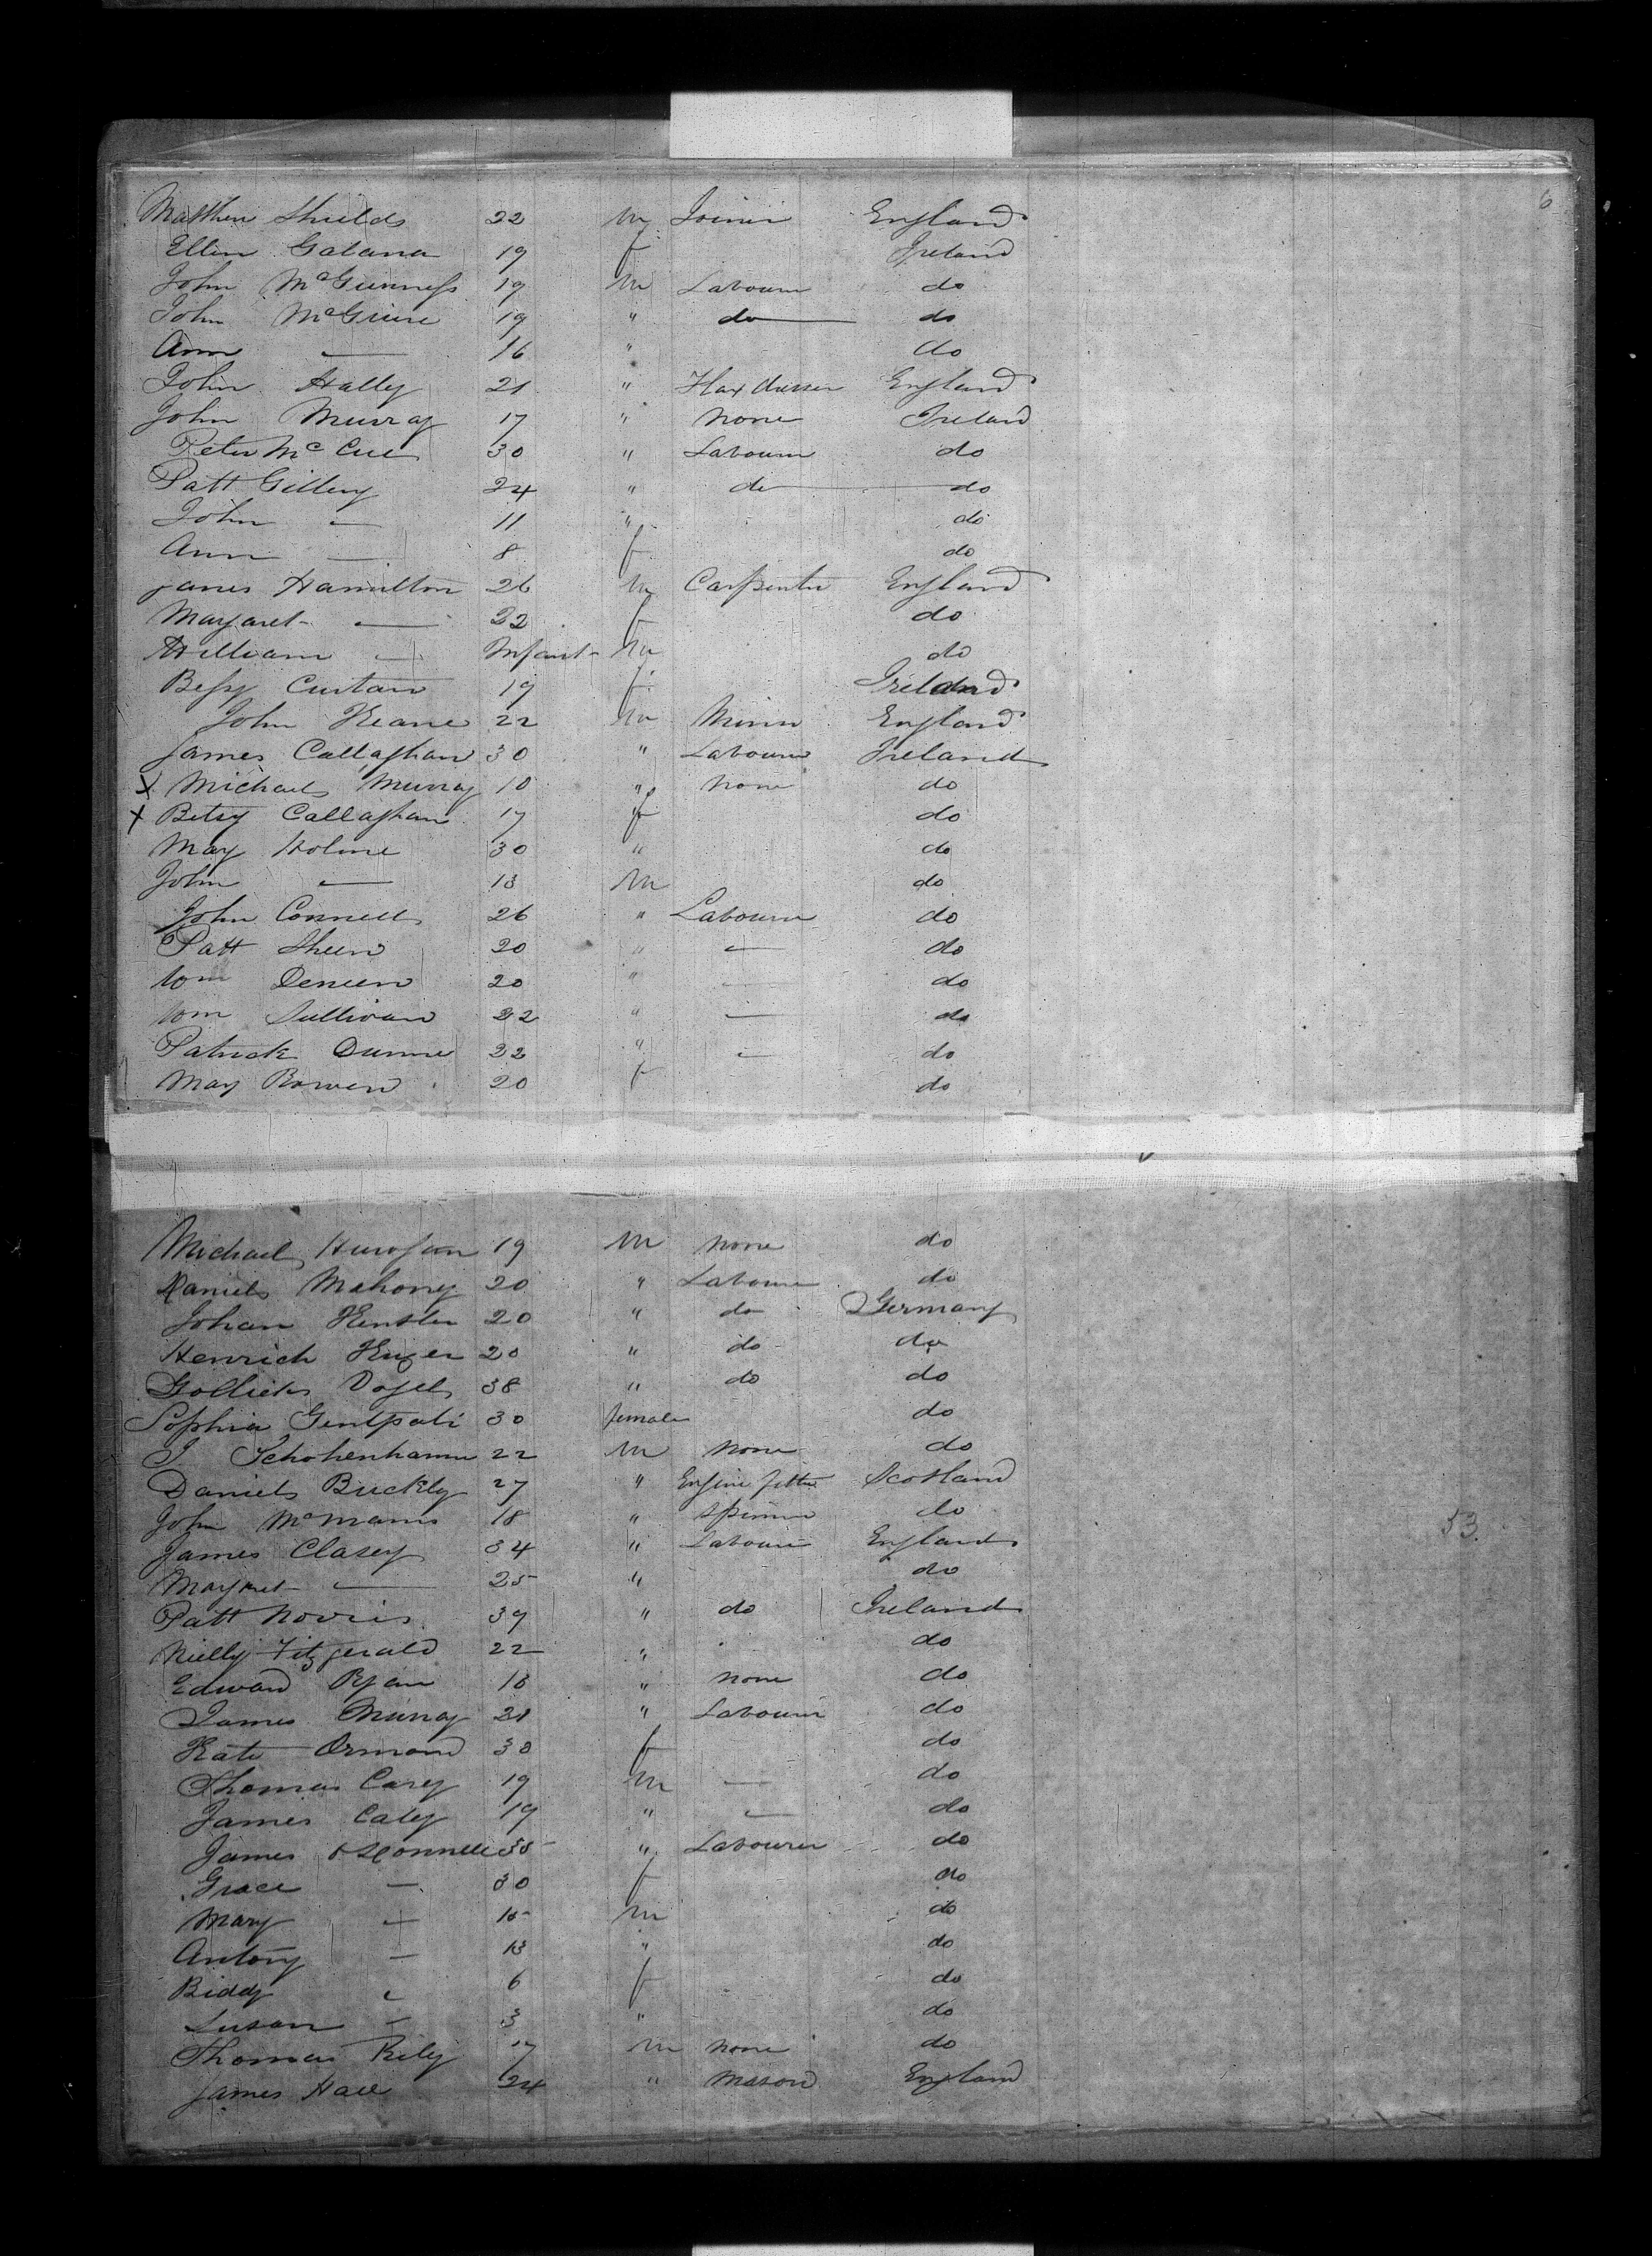 6
Matthew Shields 22 m Joiner England
Ellen Galana 19 f Ireland
John McGuinness 19 m Labourer do
John McGuire 19 " do do
Ann — 16 " do
John Hally 21 " Flax dresser England
John Murray 17 " None Ireland
Peter McCue 30 " Labourer do
Patt Gillery 24 " do do
John — 11 " do
Ann — 8 f do
James Hamilton 26 m Carpenter England
Margaret — 22 f do
William — Infant m do
Bessy Curtain 19 f Ireland
John Keane 22 m Miner England
James Callaghan 30 " Labourer Ireland
x Michael Murray 10 " None do
x Betsy Callaghan 17 f do
May Holme 30 " do
John — 13 m do
John Connell 26 " Labourer do
Patt Sheen 20 " — do
Wm Deneen 20 " — do
Wm Sullivan 22 " — do
Patrick Dunne 22 " — do
May Bowen 20 f do
Michael 19 m None do
Daniel Mahony 20 " Labourer do
Johan Hensler 20 " do Germany
Henrich Kuger 20 " do do
Gollieb Vogel 38 " do do
Sophia 30 female do
J Schohenhamm 22 m None do
Daniel Buckly 27 " Engine fitter Scotland
John McManus 18 " Spinner do
53.
James Clasey 34 " Labourer England
Margaret — 25 " do
Patt Norris 39 " do Ireland
Nielly Fitzgerald 22 " do
Edward Ryan 18 " None do
James Murray 21 " Labourer do
Kate Ormond 30 f do
Thomas Carey 19 m — do
James Caley 19 " — do
James O'Connell 35 " Labourer do
Grace — 30 f do
Mary — 15 m do
Antony — 13 " do
Biddy — 6 f do
Susan — 3 " do
Thomas Rily 17 m None do
James Hall 24 " Mason England